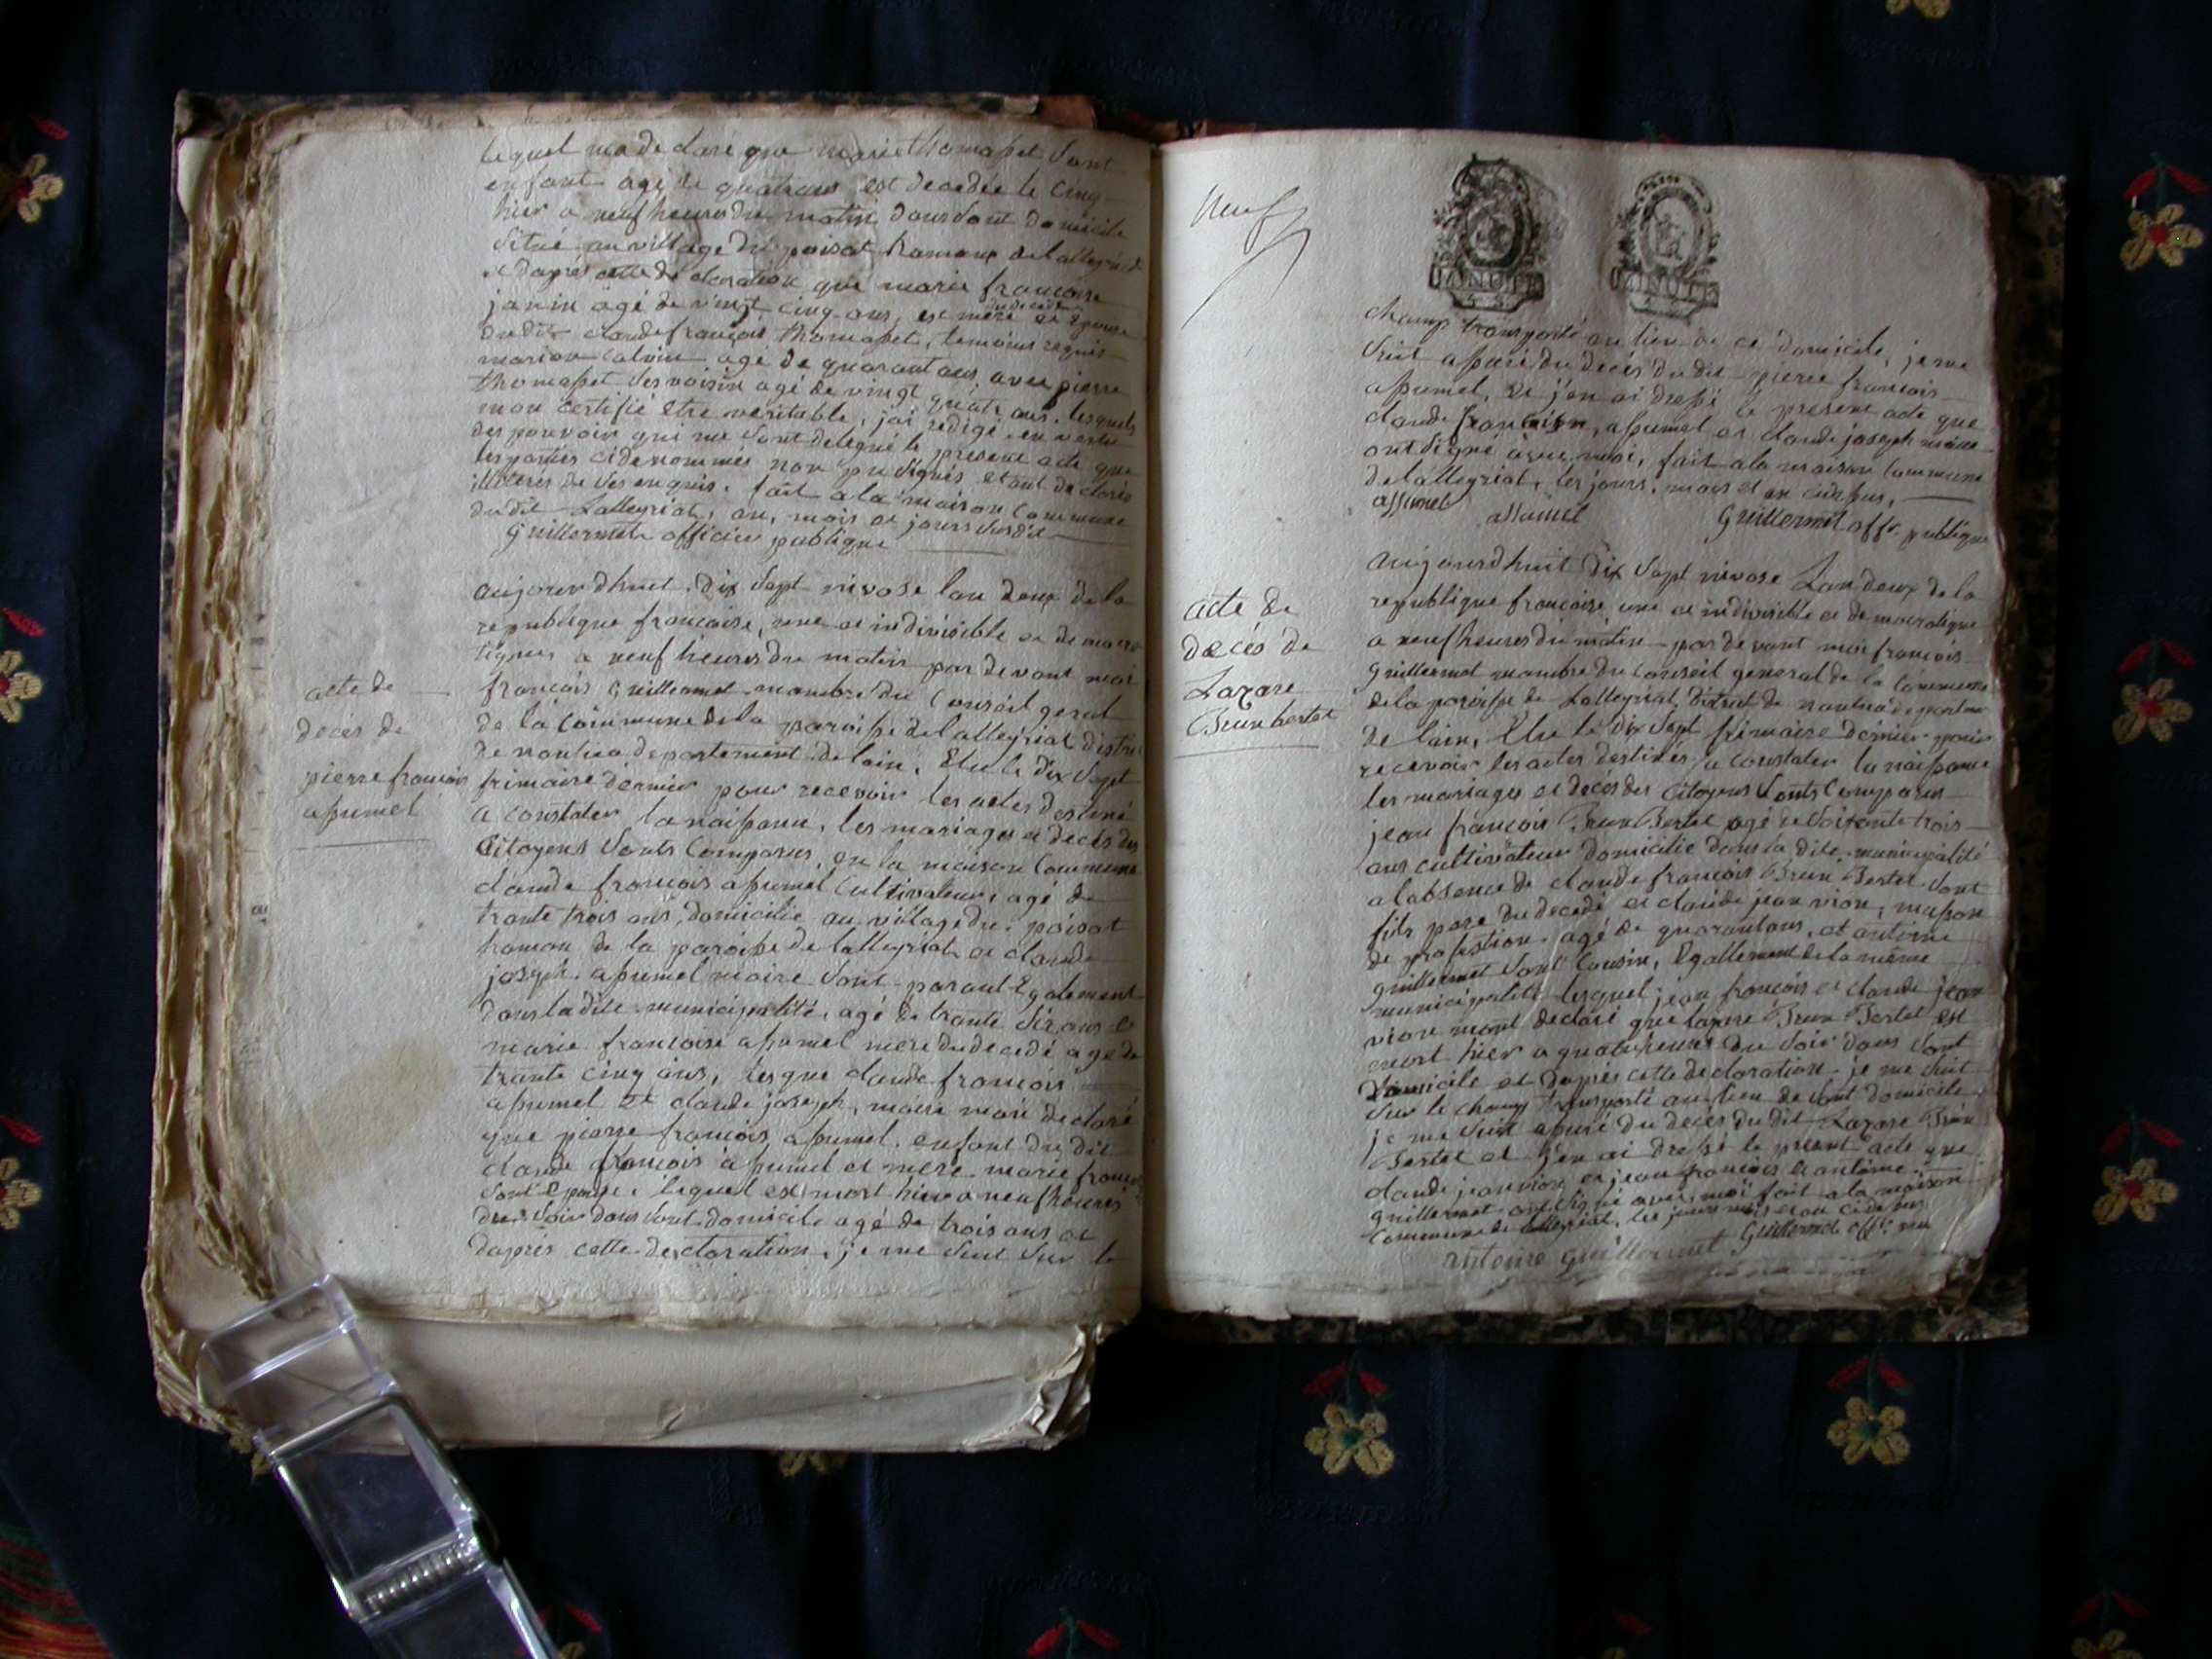 lequel ma declaré que marie thomasset sont
enfant agé de quatrans est decedée le cinq
hier a neuf heures du matin dans sont domicile
situé au village du poisat hameau de lalleyriat
et daprès cette declaration que marie françoise
janin agé de vingt cinq ans, est mere et epouse
du decedé
du dit claude françois thomasset, temoins requis
marion calvin agé de quarant ans, avec pierre
thomasset ses voisin agé de vingt quatr ans, lesquels
mon certifié etre veritable, jai redigé en vertu
des pouvoir qui me sont delegué le present acte que
les parties cidenommés non pu signés etant declarés
illiterés de ses enquis. fait a la maison commune
du dit Lalleyriat, an, mois et jours susdit
Guillermet officier publique
aujourdhuit dix sept nivose lan deux de la
republique françoise, une et indivisible et democra
tique a neuf heures du matin par devant moi
françois Guillermet membre du Conseil geral
de la commune de la paroisse de lalleyriat distri
de nantua departement de lain, Elu le dix sept
frimaire dernier pour recevoir les actes destiné
a constater la naissance, les mariages et decès des
Citoyens sonts comparus, en la maison commune
claude françois assumel cultivateur, agé de
trante trois ans, domicilié au vilage du poisat
hamau de la paroisse de lalleyriat et claude
joseph assumel maire sont parant Egalement
dans la dite municipalité, agé de trante six ans et
marie françoise assumel mere du decedé agé de
trante cinq ans, lesque claude françois
assumel et claude joseph, maire mon declaré
que pierre françois assumel, enfant du dit
claude françois assumel et mere marie françoise
sont Epouse, lequel est mort hier a neuf heures
du soir dans sont domicile agé de trois ans et
daprès cette declaration, je me suit sur le
acte de
decès de
pierre françois
assumel
neuf
champ transporté au lieu de ce domicile, je me
suit assuré du decès du dit pierre françois
assumel, et j'en ai dressé le present acte que
claude françois, assumel et claude joseph maire
ont signé avec moi, fait a la maison commune
de lalleyriat, les jours, mois et an cidessus,
assumel assumel Guillermet offr. publique
acte de
decès de
Lazare
Brun bertet
aujourdhuit dix sept nivose Lan deux de la
republique françoise une et indivisible et democratique
a neuf heures du matin par devant moi françois
Guillermet membre du conseil general de la commune
de la paroisse de Lalleyriat, District de nantua departemen
de lain, Elu le dix sept frimaire dernier pour
recevoir les actes destinés a constater la naissance
les mariages et decès des citoyens sonts comparus
jean françois Brun Bertet agé de soixante trois
ans cultivateur domicilié dans la dite municipalité
a labsence de claude françois Brun Bertet sont
fils pere du decedé et claude jean vion, masson
de profession agé de quarantans, et antoine
guillermet sont cousin, Egallement de la même
municipalité lesquel jean françois et claude jean
vion mont declaré que lazare Brun Bertet est
mort hier a quatr heures du soir dans sont
Domicile et daprès cette declaration je me suit
sur le champ transporté au lieu de sont domicile
je me suit assuré du decès du dit Lazare Brun
Bertet et j'en ai dressé le present acte que
claude jean vion et jean françois et antoine
guillermet ont signé avec moi fait a la maison
commune de lalleyriat, les jours mois et an cidessus
antoine guillermet Guillermet offr.